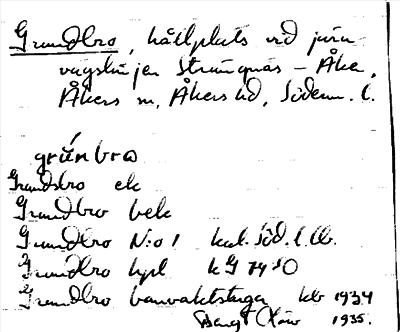 Grundbro, hållplats vid järn-
vägslinjen Strängnäs - Åker,
Åkers sn, Åkers hd, Söderm. l.
grúnbrω
Grundsbro ek
Grundbro bek
Grundbro N:o 1 kat. Söd. l.
Grundbro hpl kG 74 SO
Grundbro banvaktstuga kb 1934
Bengt 1935.